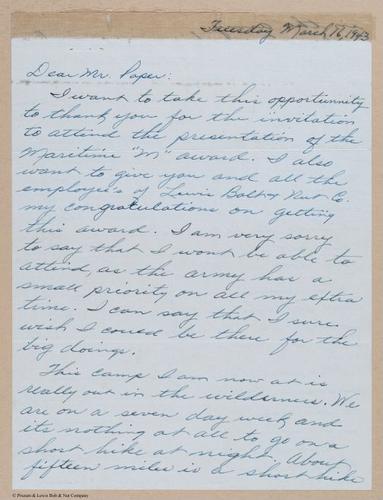 Tuesday March 16, 1943
Dear Mr. Paper:
I want to take this opportunnity
to thank you for the invitation
to attend the presentation of the
Maritime "M" award. I also
want to give you and all the
employee's of Lewis Bolt & Nut Co.
my congratulations on getting
this award. I am very sorry
to say that I wont be able to
attend, as the army has a
small priority on all my extra
time. I can say that I sure
wish I could be there for the
big doings.
This camp I am now at is
really out in the wilderness. We
are on a seven day week, and
its nothing at all to go on a
short hike at night. About
fifteen miles is a short hike
© Prusum & Lewis Bolt & Nut Company